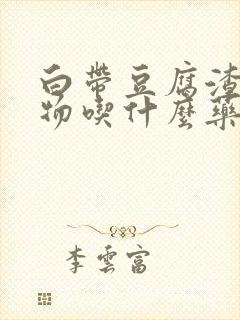 白帶豆腐渣
物喫什麼藥
李雲富